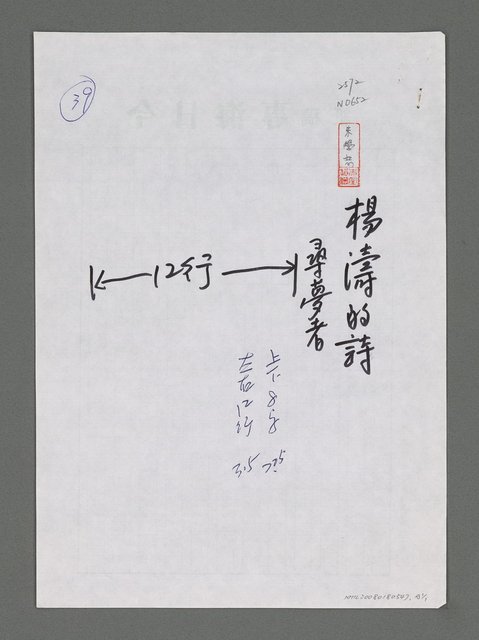 39
2572
N0652
朱學恕
楊濤的詩
尋夢者
12行
上下8字 7.5
左右12行 3.5